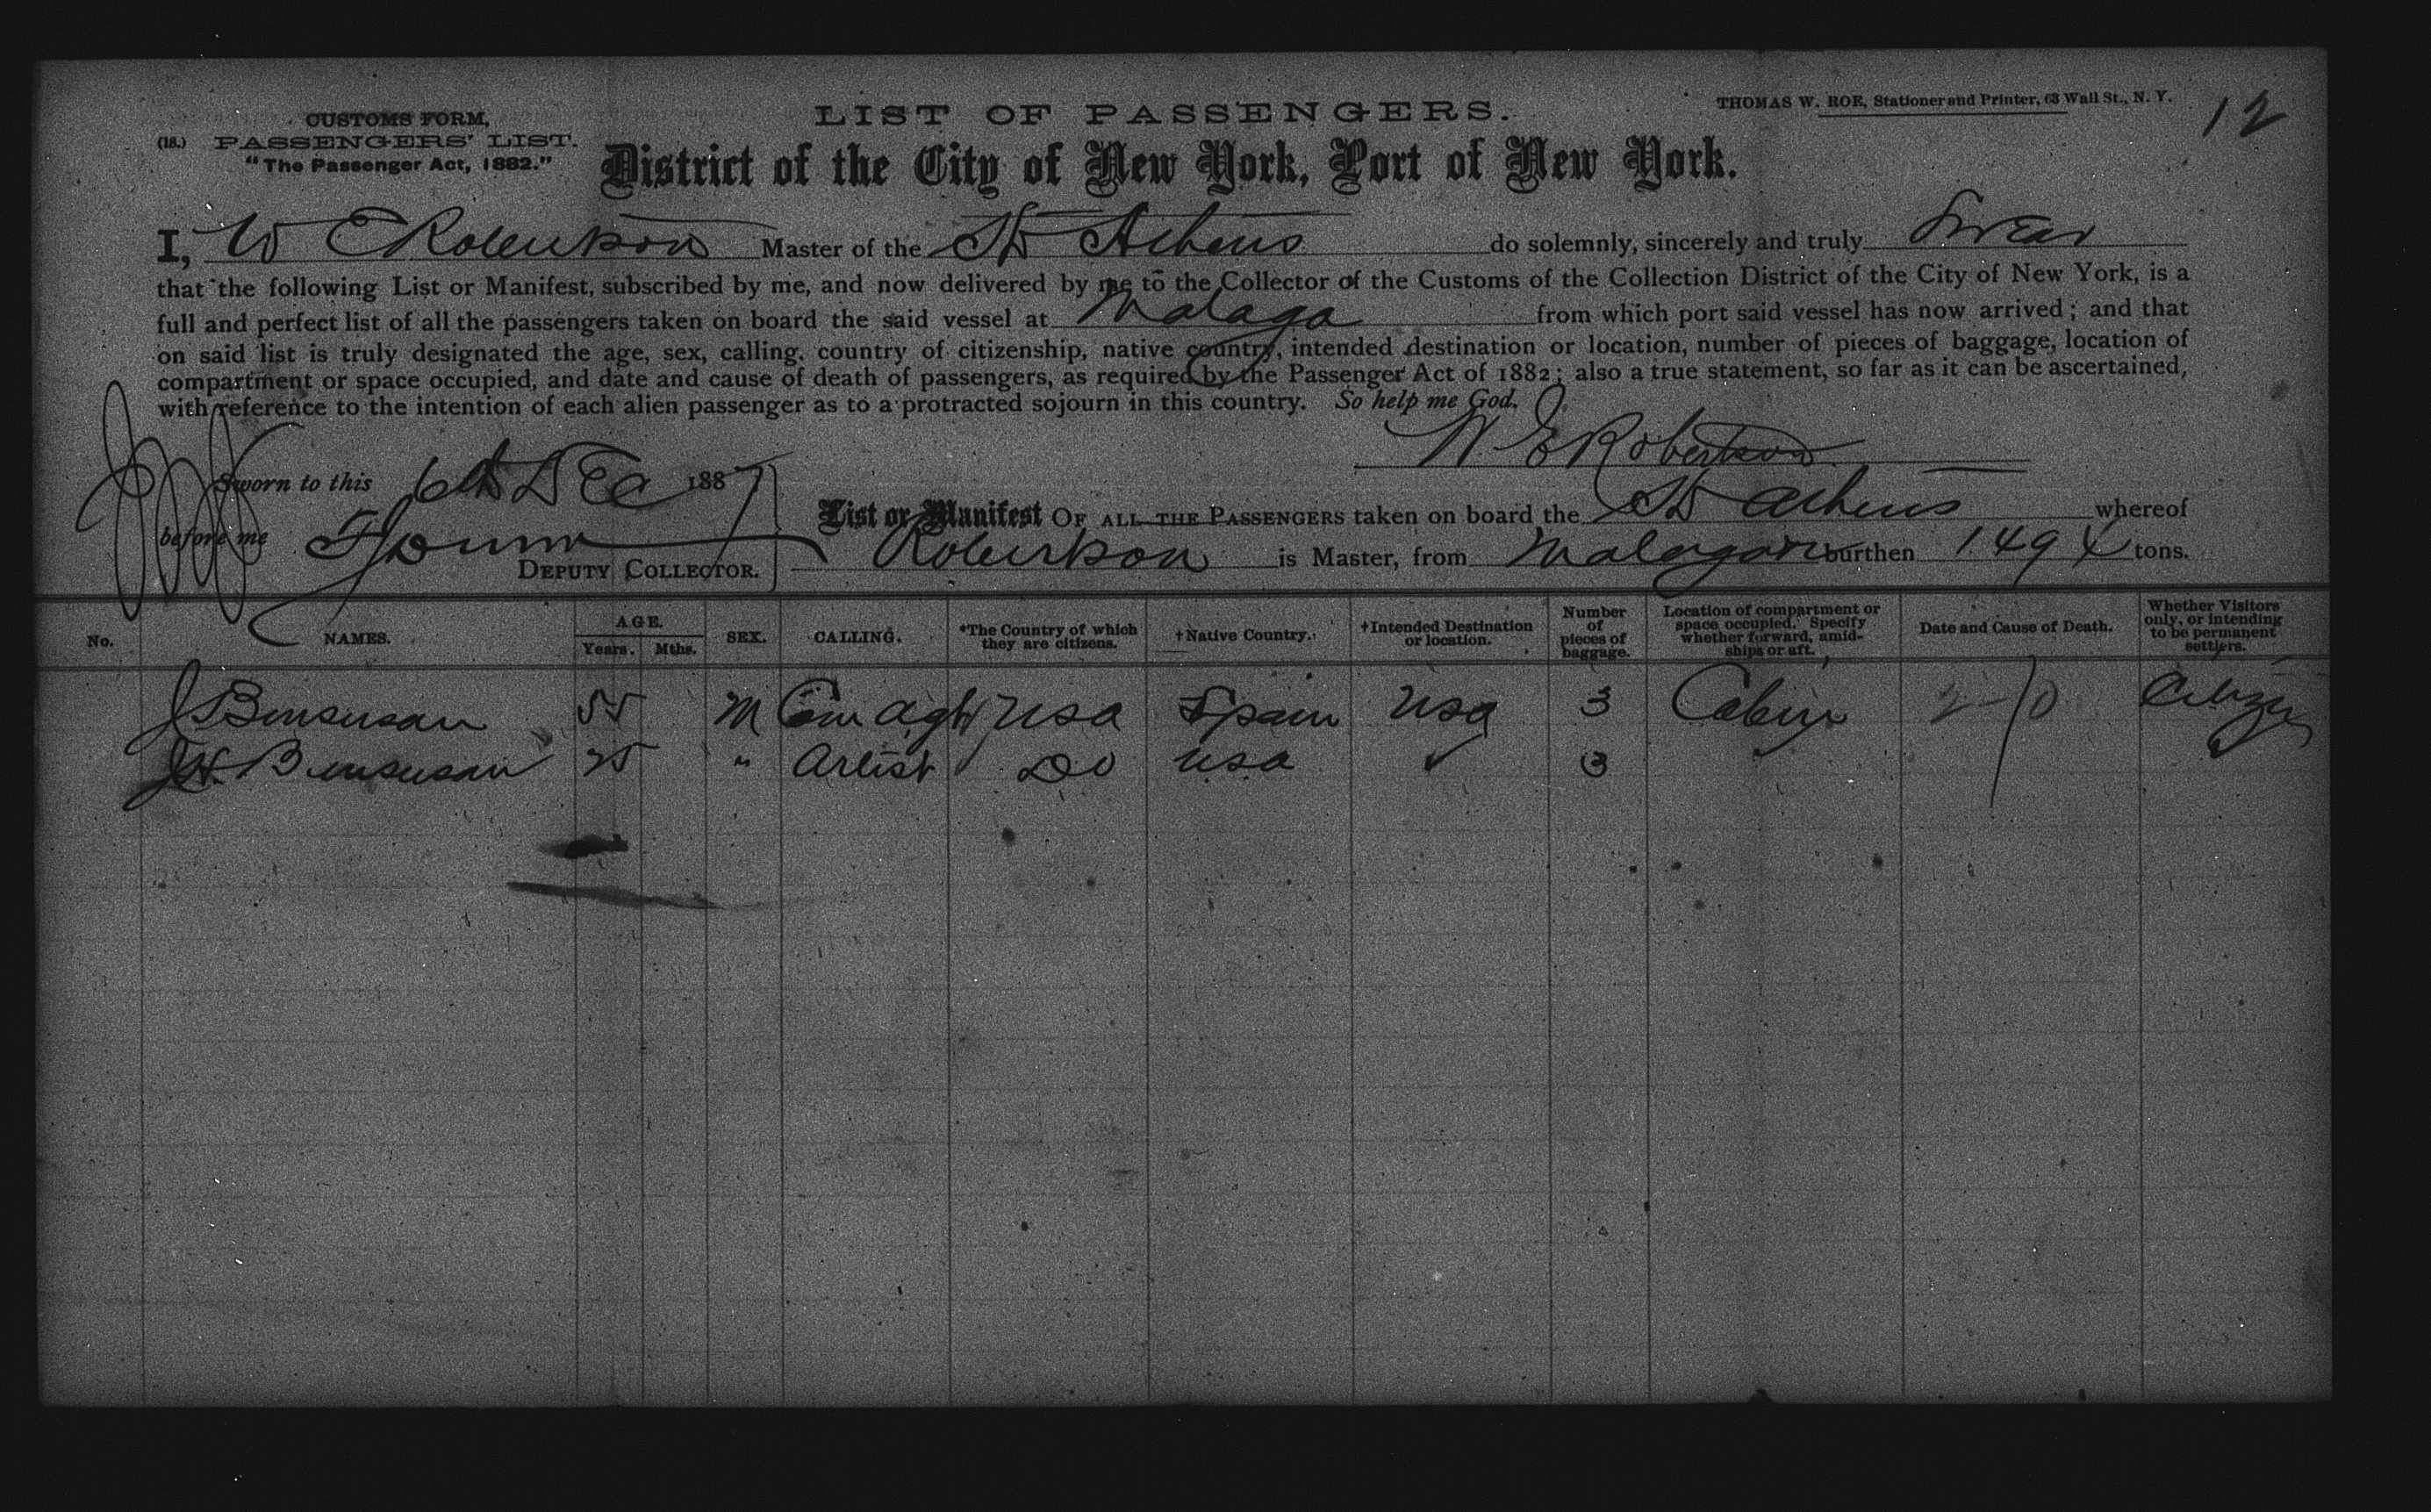 CUSTOMS FORM,
(18.) PASSENGERS' LIST.
"The Passenger Act, 1882."
LIST OF PASSENGERS.
THOMAS W. ROE, Stationer and Printer, 63 Wall St., N. Y.
12
District of the City of New York, Port of New York.
I, W E Robertson Master of the SS Athens do solemnly, sincerely and truly Swear
that the following List or Manifest, subscribed by me, and now delivered by me to the Collector of the Customs of the Collection District of the City of New York, is a
full and perfect list of all the passengers taken on board the said vessel at Malaga from which port said vessel has now arrived; and that
on said list is truly designated the age, sex, calling, country of citizenship, native country, intended destination or location, number of pieces of baggage, location of
compartment or space occupied, and date and cause of death of passengers, as required by the Passenger Act of 1882; also a true statement, so far as it can be ascertained,
with reference to the intention of each alien passenger as to a protracted sojourn in this country. So help me God.
W. E Robertson
Sworn to this 6th Dec 1887
before me
DEPUTY COLLECTOR.
List or Manifest OF ALL THE PASSENGERS taken on board the SS Athens whereof
Robertson is Master, from Malaga burthen 1494 tons.
No. NAMES. AGE. Years. Mths. SEX. CALLING. *The Country of which they are citizens. †Native Country. †Intended Destination or location. Number of pieces of baggage. Location of compartment or space occupied. Specify whether forward, amidships or aft. Date and Cause of Death. Whether Visitors only, or intending to be permanent settlers.
J Bensusan 55 M Com agt USA Spain USA 3 Cabin 2-0 Citizen
J H. Bensusan 25 " Artist Do USA ✓ 3